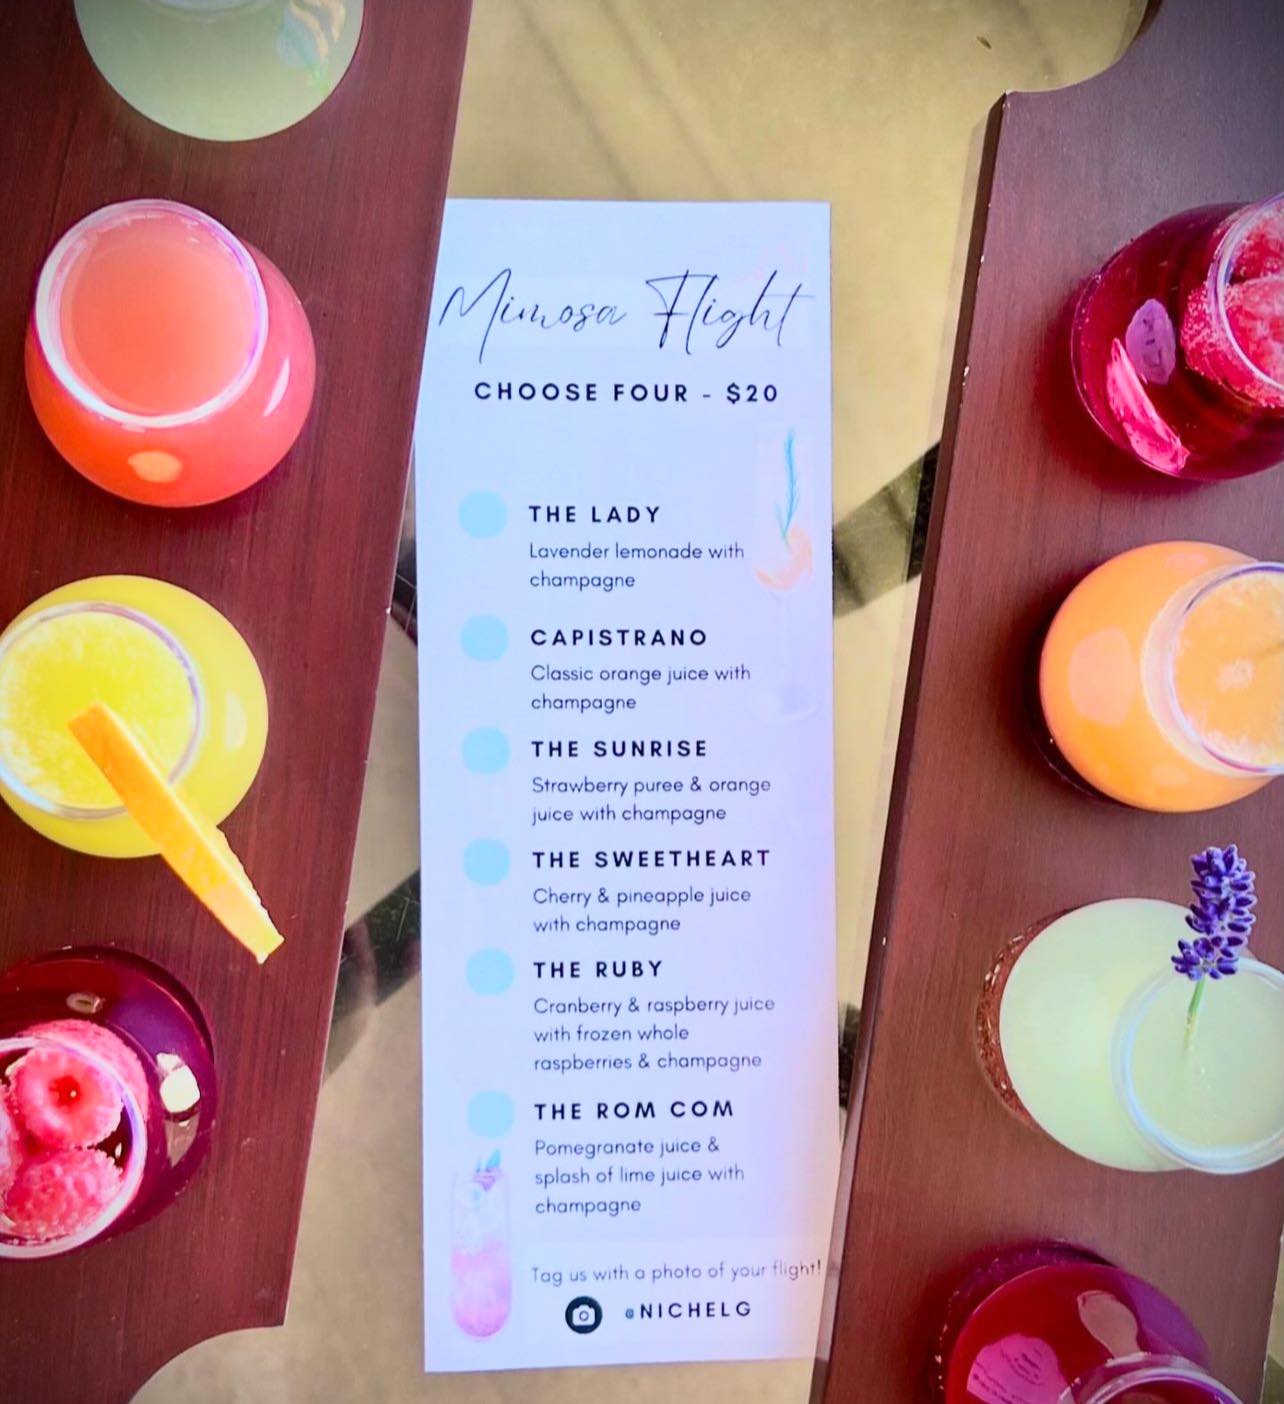 Mimosa Flight
CHOOSE FOUR - $20
THE LADY
Lavender lemonade with
champagne
CAPISTRANO
Classic orange juice with
champagne
THE SUNRISE
Strawberry puree & orange
juice with champagne
THE SWEETHEART
Cherry & pineapple juice
with champagne
THE RUBY
Cranberry & raspberry juice
with frozen whole
raspberries & champagne
THE ROM COM
Pomegranate juice &
splash of lime juice with
champagne
Tag us with a photo of your flight!
@NICHELG